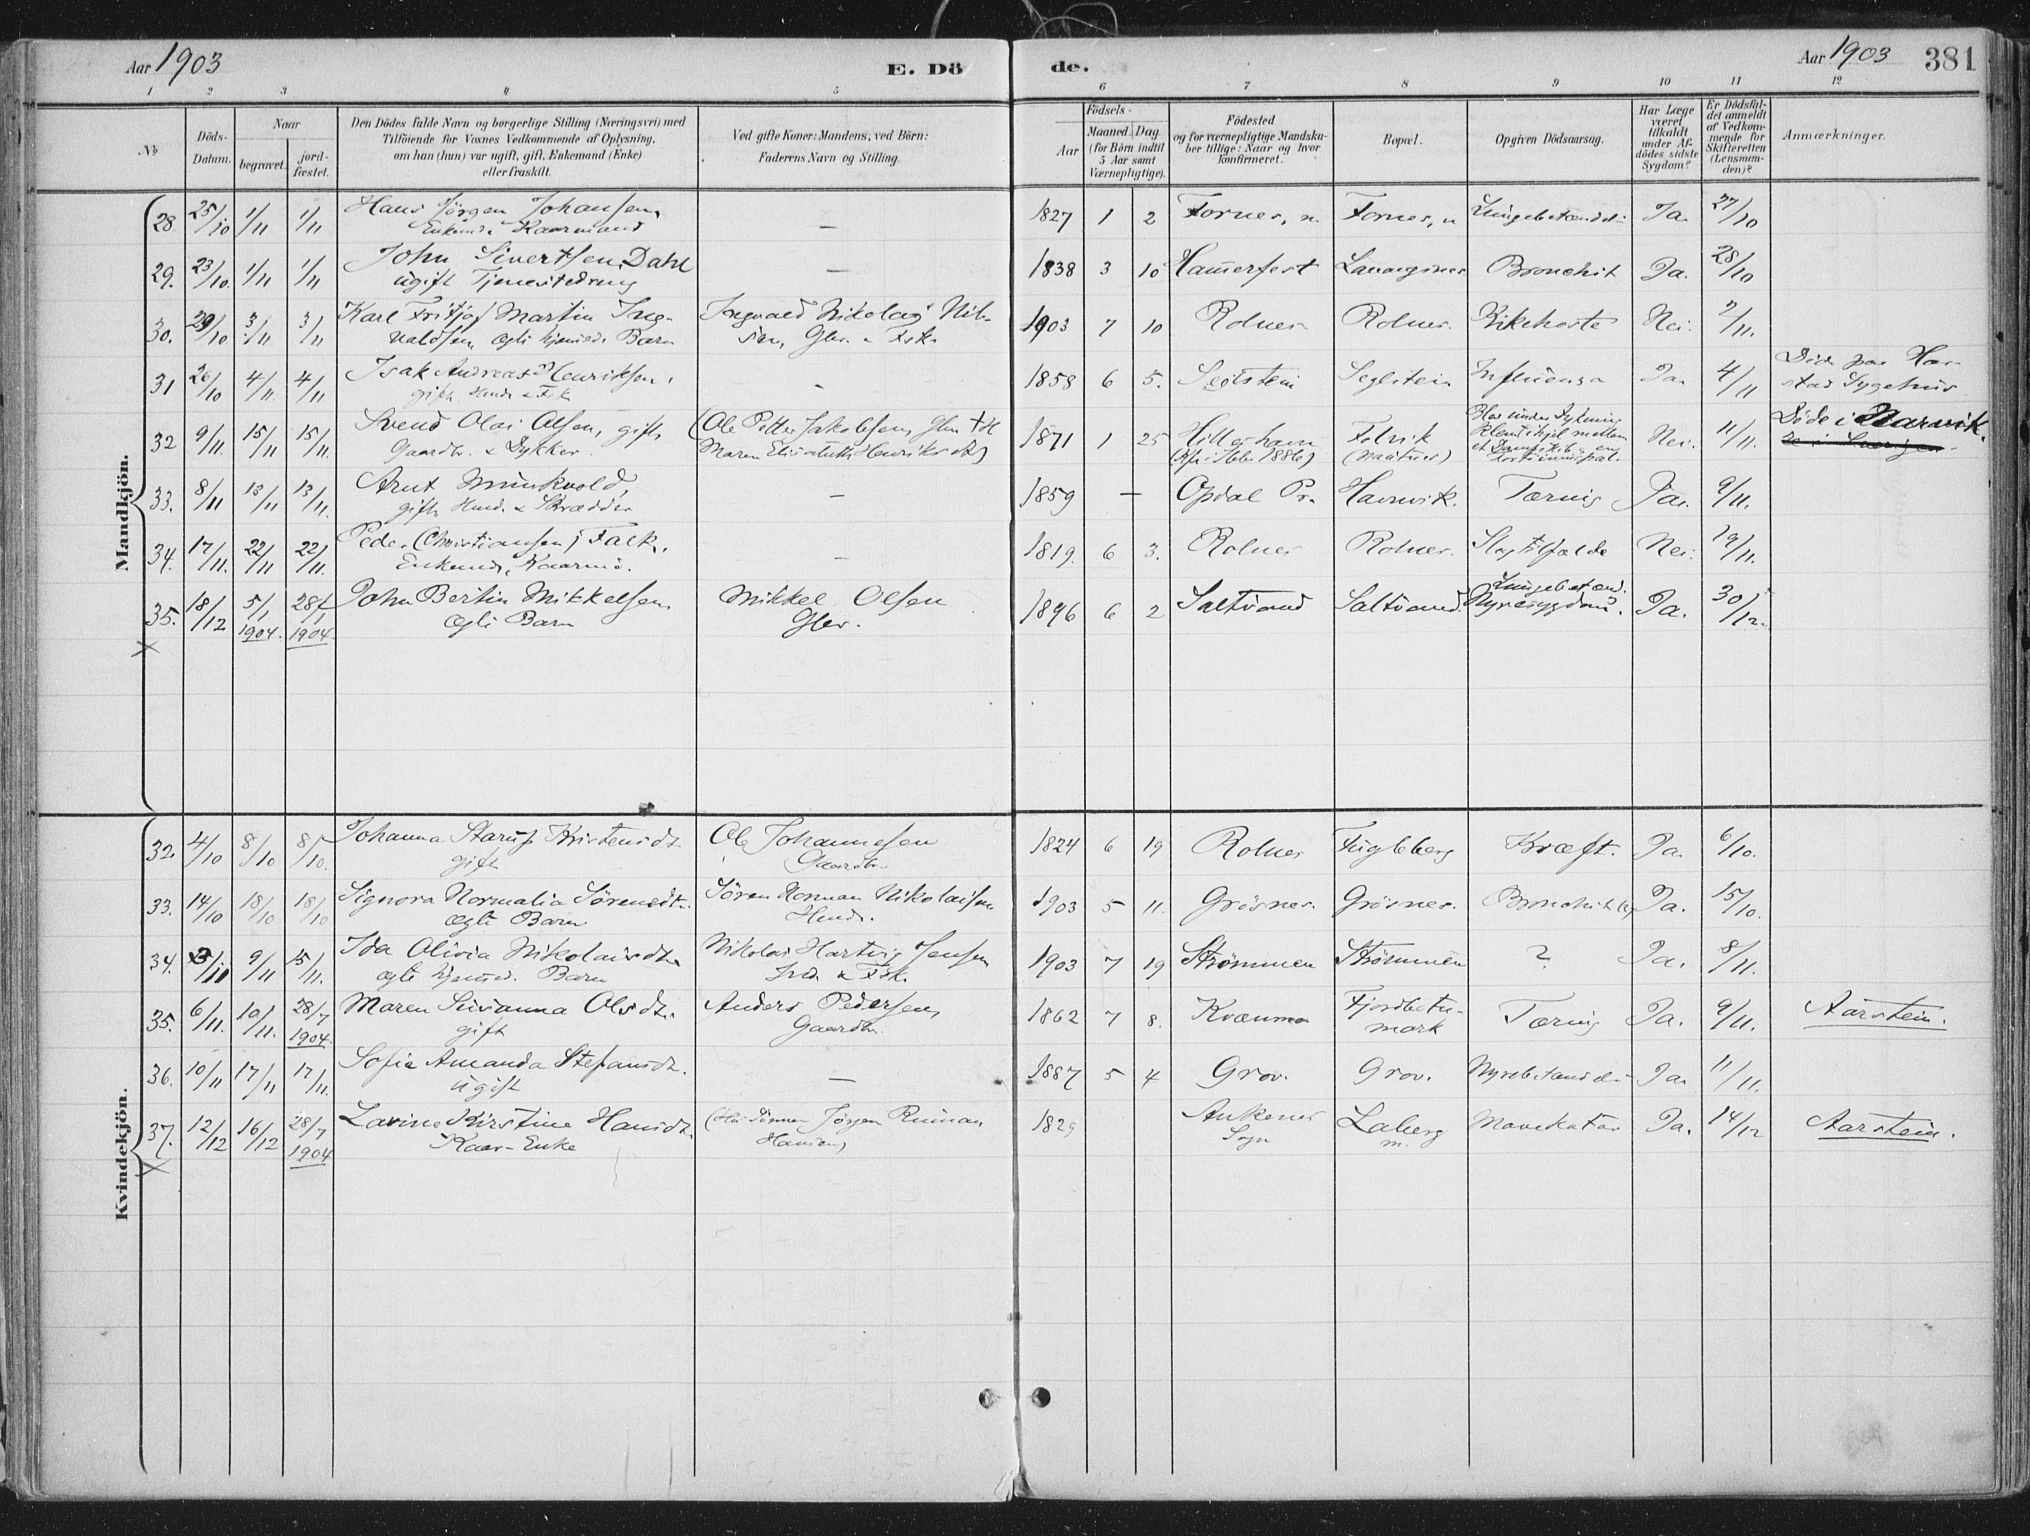 Aar 1903
E. Dö
de.
Aar 1903
381
1 2 3 4 5 6 7 8 9 10 11 12
№
Döds-
Datum.
Naar
begravet.
jord-
fæstet.
Den Dödes fulde Navn og borgerlige Stilling (Næringsvei) med
Tilföiende for Voxnes Vedkommende af Oplysning,
om han (hun) var ugift, gift, Enkemand (Enke)
eller fraskilt.
Ved gifte Koner: Mandens, ved Börn:
Faderens Navn og Stilling.
Födsels-
Aar
Maaned. Dag.
(for Börn indtil
5 Aar samt
Værnepligtige).
Födested
og for værnepligtige Mandska-
ber tillige: Naar og hvor
konfirmeret.
Bopæl.
Opgiven Dödsaarsag.
Har Læge
været
tilkaldt
under Af-
dödes sidste
Sygdom?
Er Dödsfal-
det anmeldt
af Vedkom-
mende for
Skifteretten
(Lensman-
den)?
Anmærkninger.
Mandkjön.
28 25/10 1/11 1/11 Hans Jörgen Johansen, — 1827 1 2 Fornes, n. Fornes, n Lungebetændelse Ja. 27/10
Enkemd. Kaarmand
29. 23/10. 1/11 1/11 John Sivertsen Dahl — 1838 3 10 Hamerfest Bronchit Ja. 28/10
ugift Tjenestedreng
30. 29/10 3/11 3/11 Karl Fritjof Martin Ing- Ingvald Nikolai Nil- 1903 7 10 Rolnes Rolnes. Kikhoste Nei. 2/11.
valdsen, ægte hjemmed. Barn sen, Gbr. & Fisk.
31 26/10 4/11 4/11 Isak Andreas Henriksen, - 1858 6 5. Seglstein Seglstein Influensa Ja 4/11 Döde paa Har-
gift, Husmd. & Fisk stad Sygehus
32 9/11. 15/11. 15/11. Svend Olai Olsen, gift, (Ole Petter Jakobsen, Gbr. & H 1871 1 25 Hillershavn Folvik Nei. 11/11. Döde i Narvik.
Gaardbr. & Dykker. Maren Elisabeth Henriksdt.) 1886)
Blev under Dykning
klemt ihjel mellem
et Dampskib og en
33. 8/11 13/11 13/11. Arnt Munkvold, — 1859 — Opdal Pr. Havnvik. Tæring Ja. 9/11.
gift, Husmd. & Skrædder
34. 17/11. 22/11 22/11. Peder Christiansen, Falk, — 1819. 6 3. Rolnes Rolnes. Slagtilfælde Nei. 19/11.
Enkemd., Kaarmd.
35. 18/12 5/1 1904. 28/1 1904. John Bertin Mikkelsen, Mikkel Olsen 1896 6 2 Saltvand Saltvand. Lungebetænd. Nyresygdom. Ja. 30/12.
ægte Barn Gbr.
Kvindekjön.
32. 4/10 8/10 8/10. Johanna Starup Kristensdt. Ole Johannesen 1824 6 19 Rolnes Fugleberg Kræft. Ja. 6/10.
gift Gaardbr.
33. 14/10 18/10 18/10 Signora Normalia Sörensdt. Sören Norman Nikolaisen 1903 5 11. Grösnes. Grösnes. Bronchit Ja. 15/10.
ægte Barn Husmd.
34. 9/11 15/11. Ida Olivia Nikolaisdt. Nikolai Hartvig Jensen 1903 7 19 Strömmen Strömmen ? Ja. 8/11.
ægte hjemmed. Barn Ind. & Fisk.
35. 6/11. 10/11. 28/7 1904. Maren Susanna Olsdt. Anders Pedersen, 1862 7 8. Kvænmo Fjordbotn- Tæring Ja. 9/11. Aarstein.
gift Gaardbr. mark
36. 10/11 17/11 17/11. Sofie Amanda Stefansdt. — 1887 5 4 Grov. Grov. Nyrebetændelse Ja. 11/11.
Ugift
37. 12/12 16/12 28/7 1904 Lavine Kirstine Hansdt. Jörgen 1829 Ankenes Laberg Mavekatar Ja. 14/12 Aarstein.
Kaar-Enke Hansen) Sogn m.